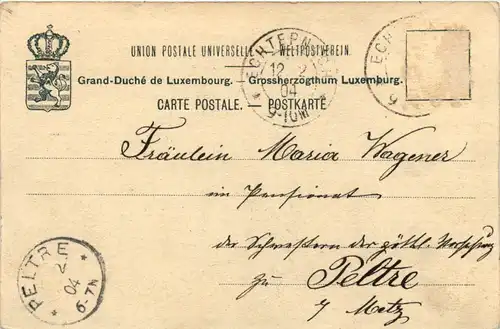 UNION POSTALE UNIVERSELLE. — WELTPOSTVEREIN.
Grand-Duché de Luxembourg. — Grossherzogthum Luxemburg.
CARTE POSTALE. — POSTKARTE
ECHTERN
12
04
9-10M
EC
Fräulein Maria Wagener
im Pensionat
der Schwestern der göttl. Vorsehung
zu Peltre
b/ Metz
PELTRE
2
04
6-7N